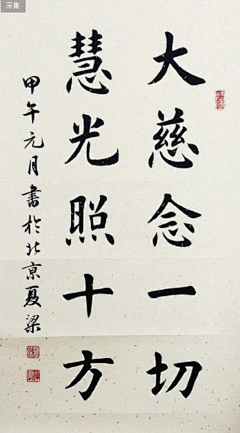 大慈念一切
慧光照十方
甲午元月書於北京夏梁
采集